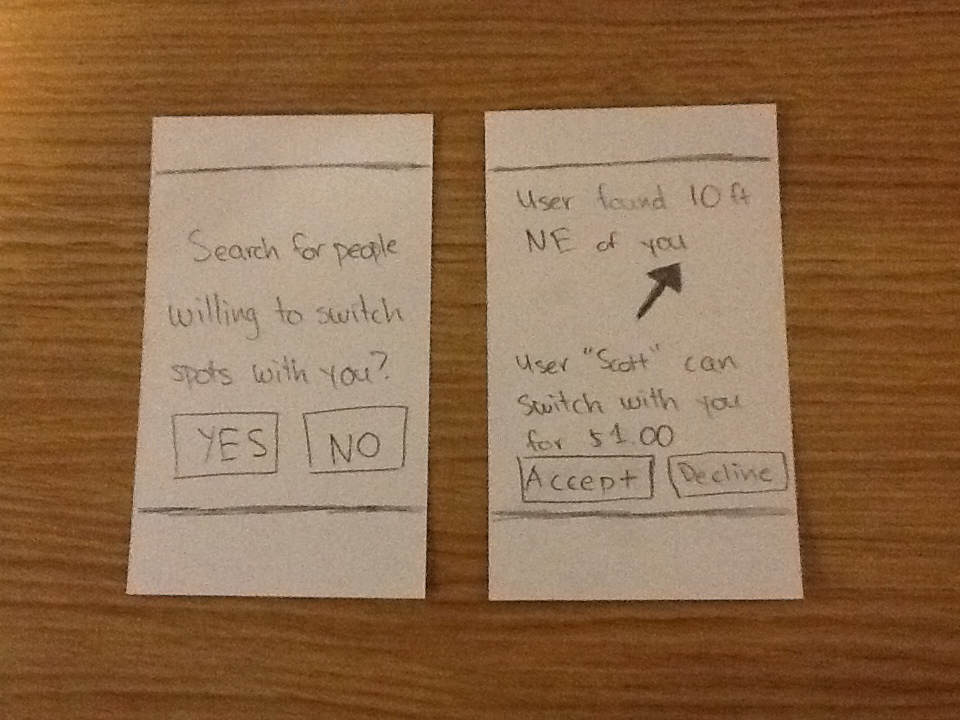 Search for people
willing to switch
spots with you?
YES NO
User found 10 ft
NE of you
User "Scott" can
switch with you
for $1.00
Accept Decline